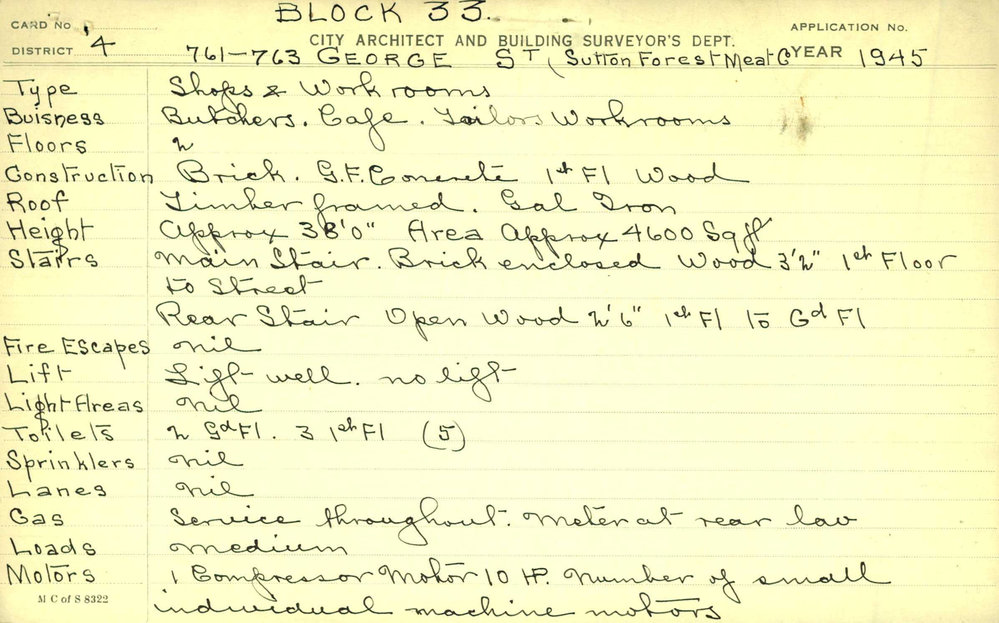 BLOCK 33.
CARD No
APPLICATION No.
CITY ARCHITECT AND BUILDING SURVEYOR'S DEPT.
DISTRICT 4
761-763 GEORGE ST (Sutton Forest Meat Co YEAR 1945
Type Shops & Workrooms
Buisness Butchers. Cafe. Tailors Workrooms
Floors 2
Construction Brick. G.F. Concrete 1st Fl Wood
Roof Timber framed. Gal Iron
Height Approx 38'0" Area Approx 4600 Sq ft
Stairs Main Stair. Brick enclosed Wood 3'2" 1st Floor
to Street
Rear Stair Open Wood 2'6" 1st Fl to Gd Fl
Fire Escapes nil
Lift Lift well. no lift
Light Areas nil
Toilets 2 Gd Fl. 3 1st Fl (5)
Sprinklers nil
Lanes nil
Gas Service throughout. Meter at rear lav
Loads medium
Motors 1 Compressor Motor 10 HP. Number of small
M C of S 8322
individual machine motors